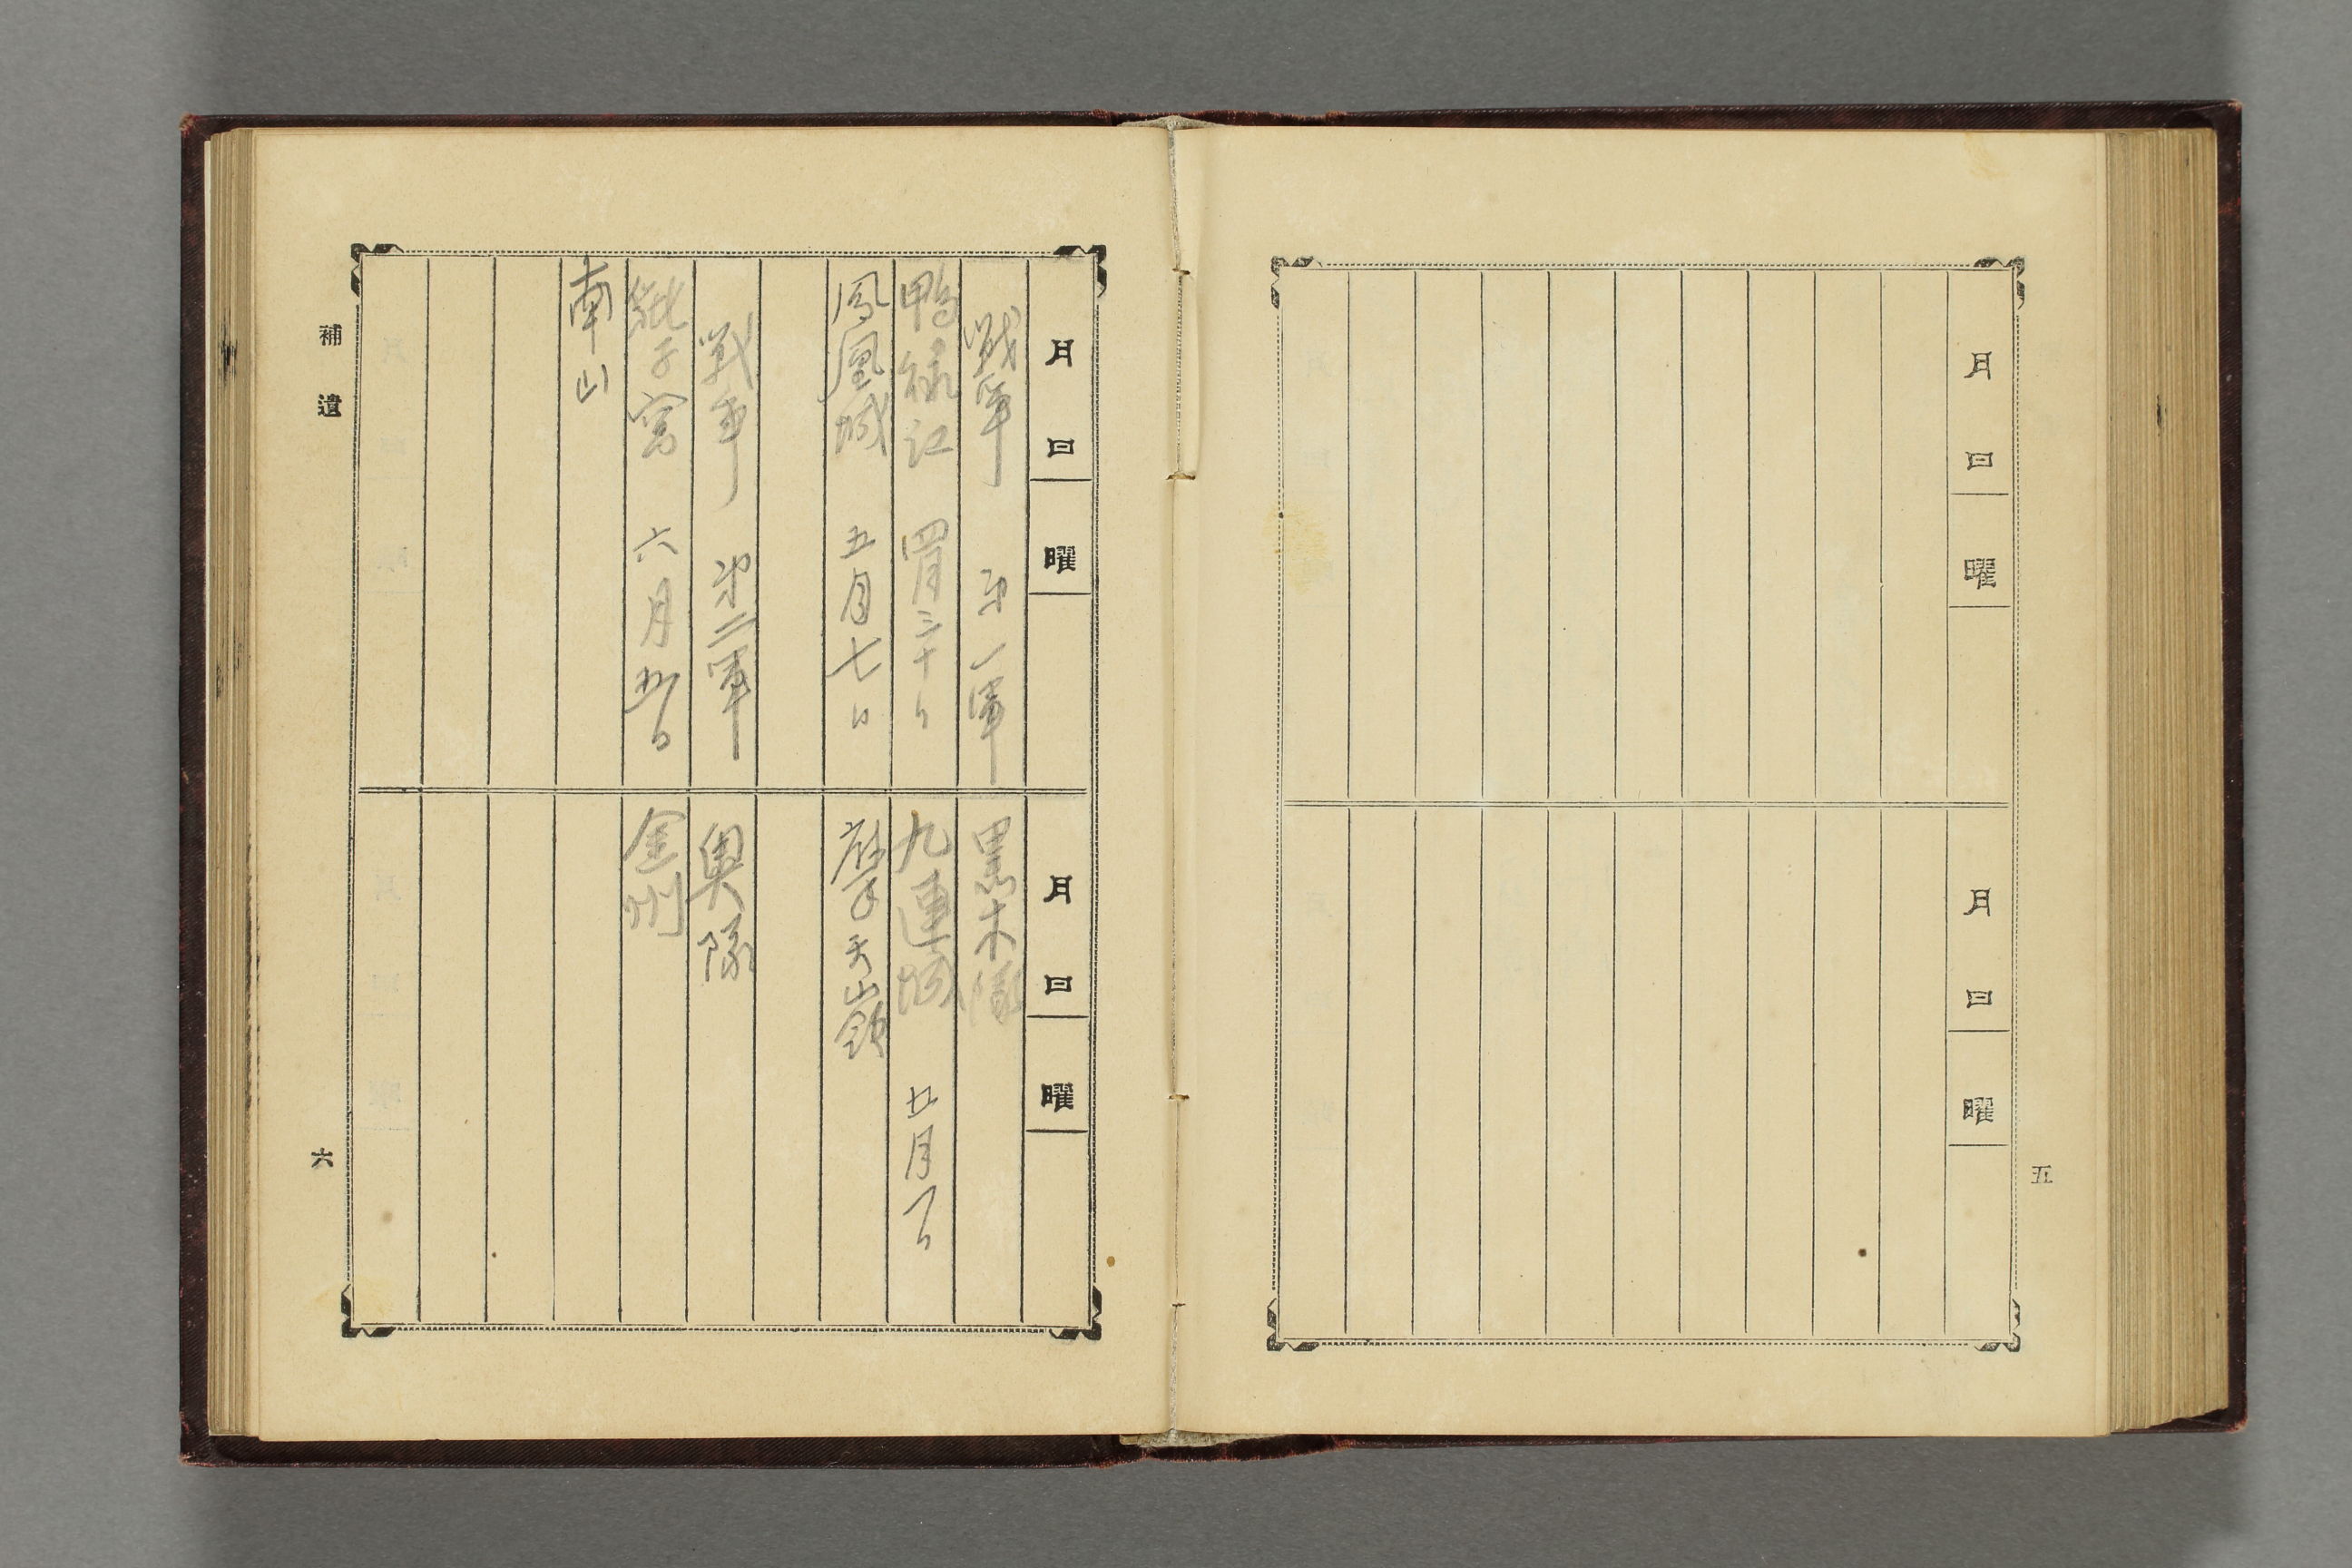 五
月 日 曜
月 日 曜
月 日 曜
戦争 第一軍
鴨緑江 四月三十日
鳳凰城 五月七日
戦争 第二軍
子窩 六月五日
南山
月 日 曜
黒木隊
九連城 五月一日
天山嶺
奥隊
金州
補遺 六